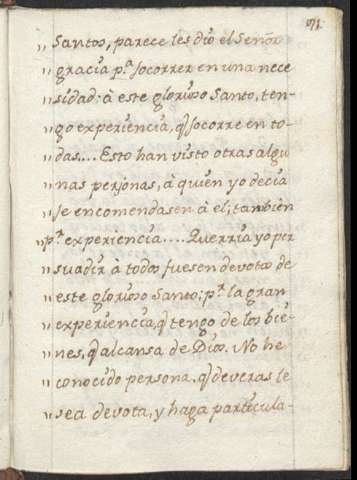 71.
" Santos, parece les dió el Señor
" gracia p.ª socorrer en una nece
" sidad: à este glorioso Santo, ten-
" go experiencia, q̃ socorre en to-
" das.... Esto han visto otras algu
" nas personas, à quien yo decia
" se encomendasen à el; tambien
" p.r experiencia.... Querria yo per
" suadir à todos fuesen devotos de
" este glorioso Santo; p.r la gran
" experiencia, q̃ tengo de los bie-
" nes, q̃ alcansa de Dios. No he
" conocido persona, q̃ deveras le
" sea devota, y haga particula-